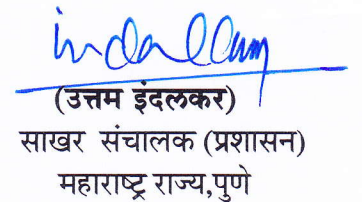 (उत्तम इंदलकर)
साखर संचालक (प्रशासन)
महाराष्ट्र राज्य,पुणे